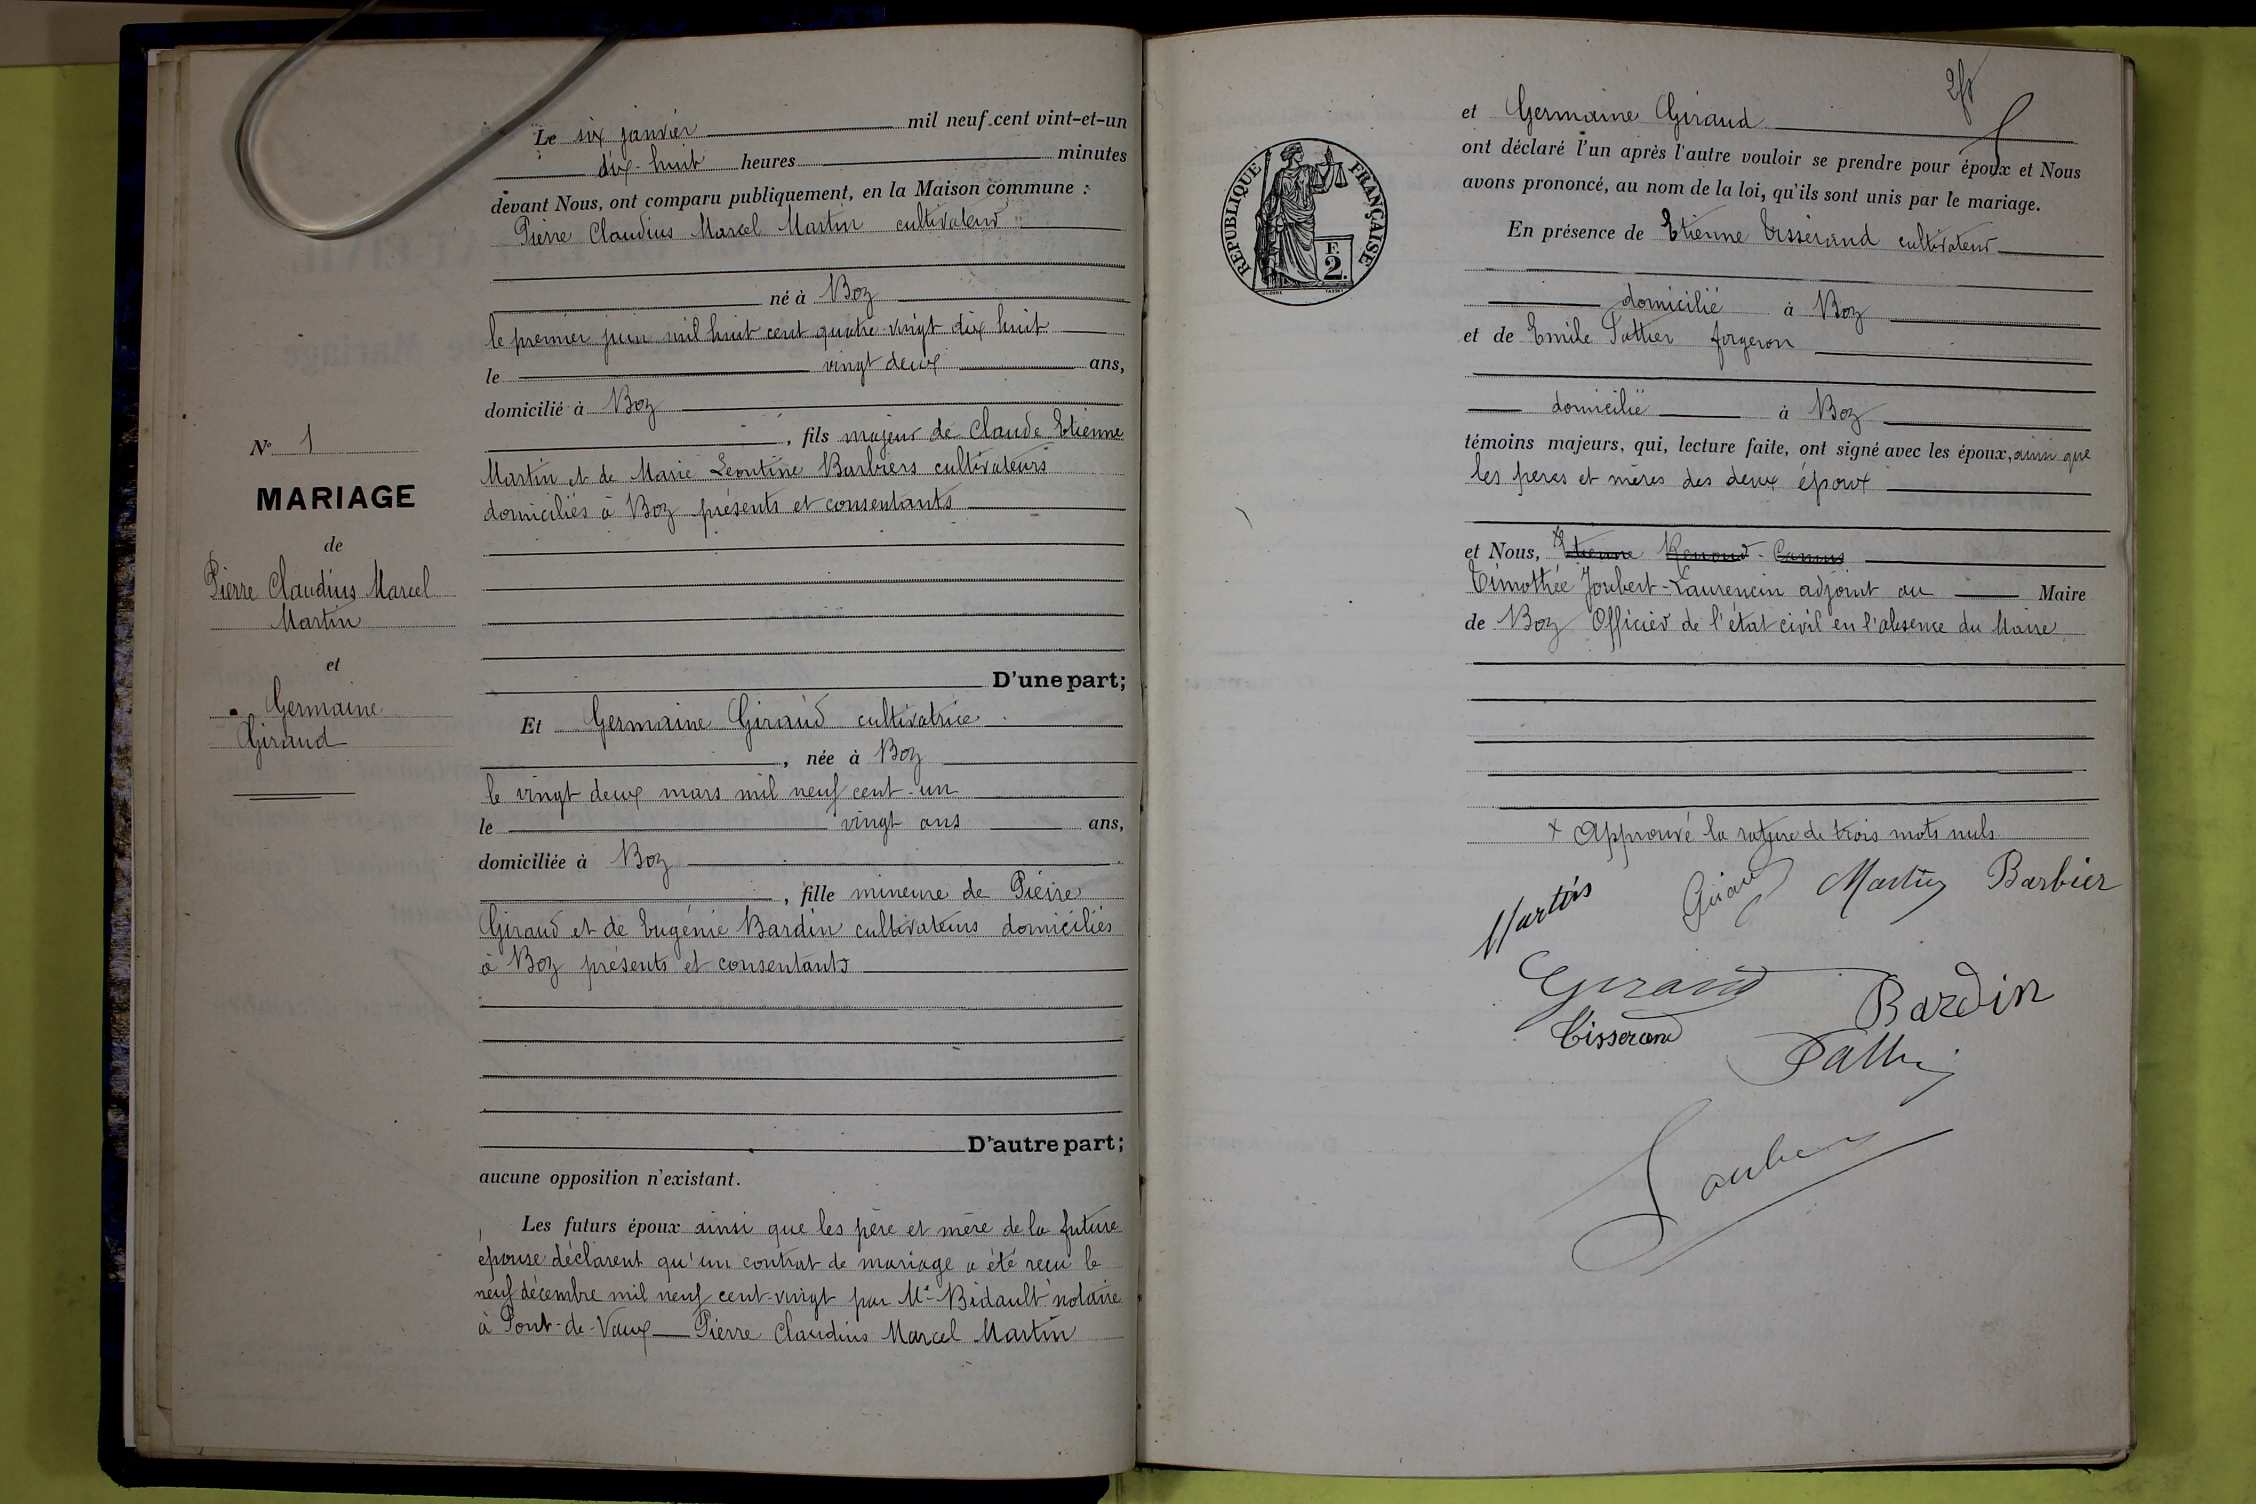 Le six janvier mil neuf cent vint-et-un
dix-huit heures minutes
devant Nous, ont comparu publiquement, en la Maison commune :
Pierre Claudius Marcel Martin cultivateur
né à Boz
le premier juin mil huit cent quatre-vingt dix huit
le vingt deux ans,
domicilié à Boz
, fils majeur de Claude Etienne
Martin et de Marie Leontine Barbiers cultivateurs
domiciliés à Boz présents et consentants
D'une part;
Et Germaine Giraud cultivatrice
, née à Boz
le vingt deux mars mil neuf cent-un
le vingt ans ans,
domiciliée à Boz
, fille mineure de Pierre
Giraud et de Eugénie Bardin cultivateurs domiciliés
à Boz présents et consentants
D'autre part;
aucune opposition n'existant.
Les futurs époux ainsi que les père et mère de la future
épouse déclarent qu'un contrat de mariage a été recu le
neuf décembre mil neuf cent-vingt par Me Bidault notaire
à Pont-de-Vaux Pierre Claudius Marcel Martin
No 1
MARIAGE
de
Pierre Claudius Marcel
Martin
et
Germaine
Giraud
RÉPUBLIQUE FRANÇAISE
F.
2.
et Germaine Giraud
ont déclaré l'un après l'autre vouloir se prendre pour époux et Nous
avons prononcé, au nom de la loi, qu'ils sont unis par le mariage.
En présence de Etienne Tisserand cultivateur
domicilié à Boz
et de Emile Pathier forgeron
domicilié à Boz
témoins majeurs, qui, lecture faite, ont signé avec les époux, ainsi que
les peres et mères des deux époux
et Nous, x Etienne Renoud-Camus
Timothée Joubert-Laurencin adjoint au Maire
de Boz Officier de l'état civil en l'absence du Maire
x Approuvé la rature de trois mots nuls
Martin Giraud Martin Barbier
Giraud
Bardin
Tisserand
Joubert